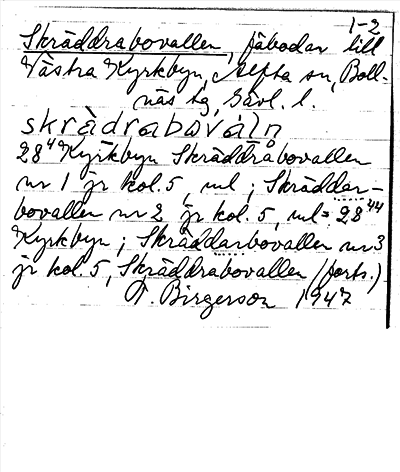 1-2
Skräddrabovallen, fäbodar till
Västra Kyrkbyn, Alfta sn, Boll-
näs tg, Gävl. l.
skrädrabovàln
28⁴ Kyrkbyn Skräddrabovallen
nr 1 jr kol. 5, ml; Skräddar-
bovallen nr 2 jr kol. 5, ml = 28⁴⁴
Kyrkbyn; Skräddarbovallen nr 3
jr kol. 5, Skräddrabovallen (forts.)
T. Birgerson 1947